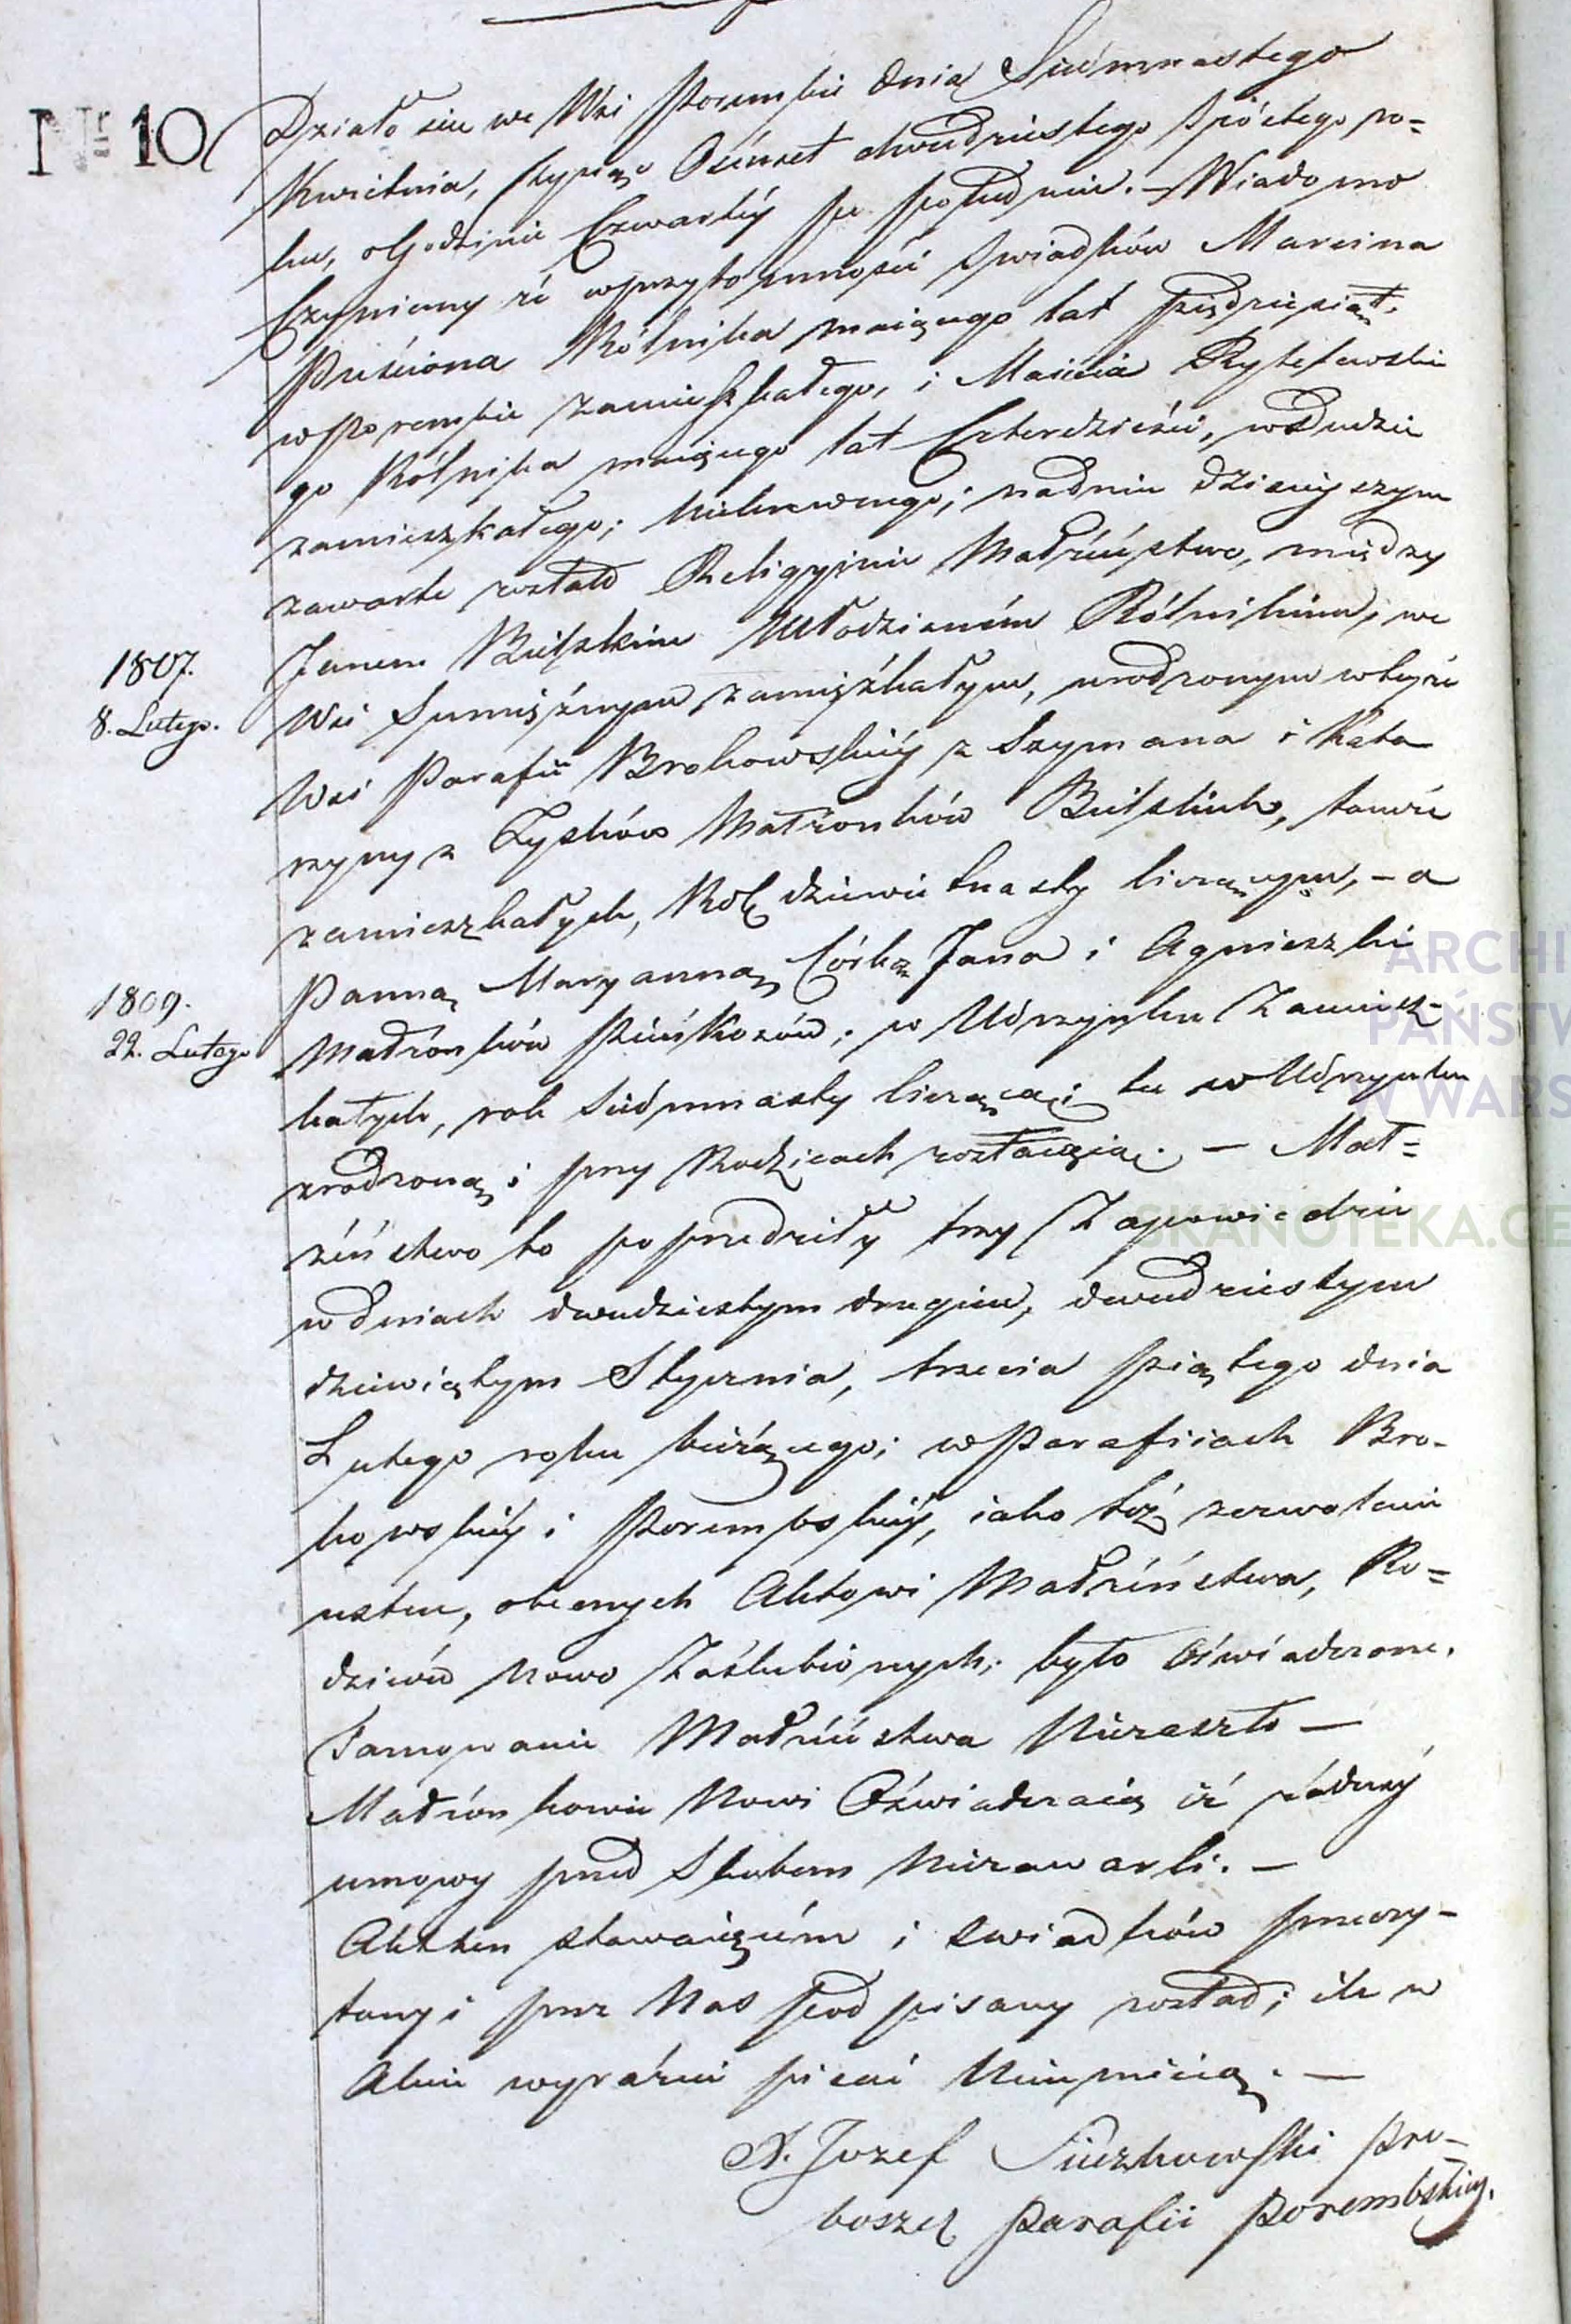 Nr 10
Działo sie we Wsi Porembie dnia Siódmnastego
Kwietnia, tysiąc Ośmset dwudziestego Szóstego ro=
ku, o Godzinie Czwartéy po południu. – Wiadomo
Czyniemy że w przytomności Swiadków Marcina
Rólnika maiącego lat piędziesiąt,
w Porembie zamieszkałego, i Macieia
go Rólnika maiącego lat Czterdzieści,
zamieszkałego; na dniu dzisieyszym
zawarte zostało Religyinie Małżeństwo, między
Janem Bielskim Młodzianem Rólnikiem, we
Wsi zamieszkałym, urodzonym w teyże
1807.
8. Lutego.
Wsi Parafii Brokowskiéy z Szymana i Kata
rzyny z Zysków Małżonków Bielskich, tamże
zamieszkałych, Rok dziewietnasty liczącym, – a
Panną Maryanną Córką Jana i Agnieszki
1809.
22. Lutego
Małżonków w Udrzynku Zamiesz-
kałych, rok Siódmnasty liczącą; tu w Udrzynku
zrodzoną i przy Rodzicach zostaiącą. – Mał=
żeństwo to poprzedziły trzy Zapowiedzie
w dniach dwudziestym drugim, dwudziestym
dziewiątym Stycznia, trzecia piątego dnia
Lutego roku bieżącego; w Parafiiach Bro-
kowskiéy i Porembskiéy, iako też zezwolenie
ustne, obecnych Aktowi Małżeństwa, Ro=
dziców Nowo Zaślubionych; było Oświadczone.
Tamowanie Małżeństwa Niezaszło –
Małżonkowie Nowi Oświadczaią iż żádnéy
umowy przed Slubem Niezawarli. –
Akt ten stawaiącém i swiadków przeczy-
tany i przez Nas podpisany został; ile w
Akcie wyrażeni pisać Nieumieią. –
X. Jozef Pro-
boszcz Parafii Porembskiey.
ARCHI
PAŃSTW
W WARS
SKANOTEKA.GE